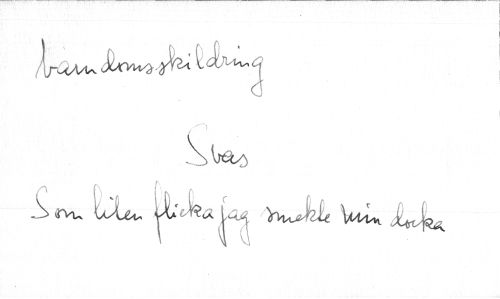 barndomsskildring
Svas
Som liten flicka jag smekte min docka